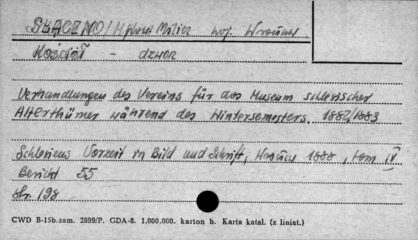 Kościół - dzwon
Verhandlungen des Vereins für das Museum schlesischer
Alterthümer während des Wintersemesters. 1882/1883
Schlesiens Vorzeit in Bild und Schrift, 1888, tom IV
Bericht 55
str. 198
CWD B-15b.zam. 2899/P. GDA-8. 1.000.000. karton b. Karta katal. (z liniat.)